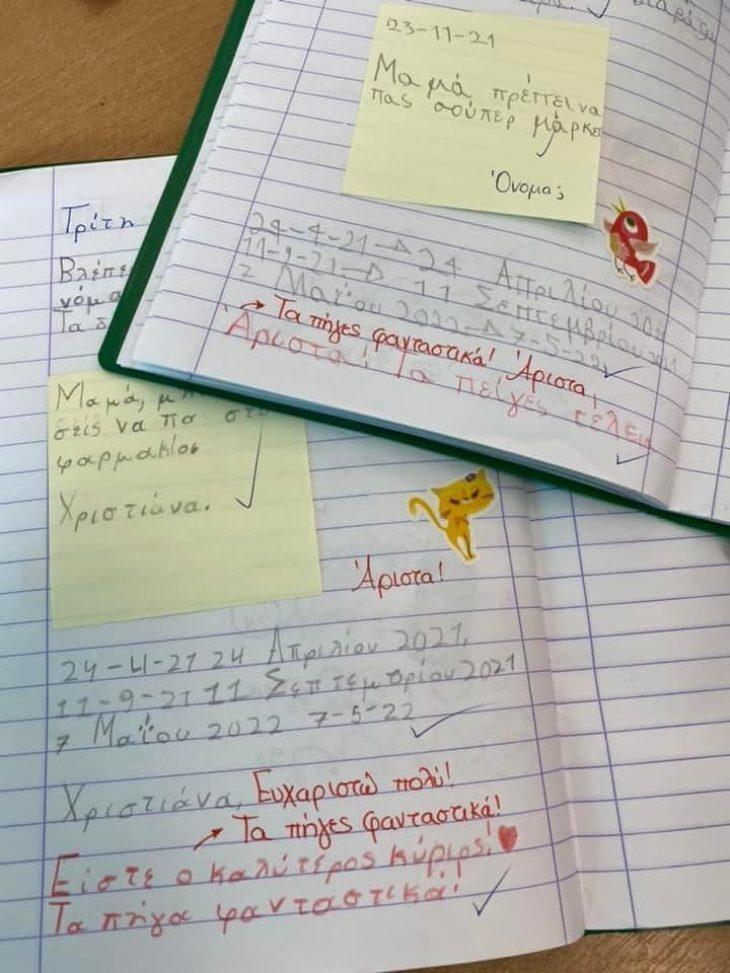 23-11-21
Μαμά πρέπει να
πας σούπερ μάρκε
Όνομα;
24-4-21-Δ 24 Απριλίου 2021
11-9-21-Δ 11 Σεπτεμβρίου 2021
7 Μαΐου 2022-Δ 7-5-22
Τα πήγες φανταστικά! Άριστα,
Άριστα! Τα πείγες τέλεια
Τρίτη
Βλέπε
νόμα
Τα δ
Μαμά, μπ
στίς να πα στο
φαρμακίοσ
Χριστιάνα.
Άριστα!
24-4-21 24 Απριλίου 2021,
11-9-21 11 Σεπτεμβρίου 2021
7 Μαΐου 2022 7-5-22
Χριστιάνα, Ευχαριστώ πολύ!
Τα πήγες φανταστικά!
Είστε ο καλύτερος κύριος!
Τα πήγα φανταστεικά!